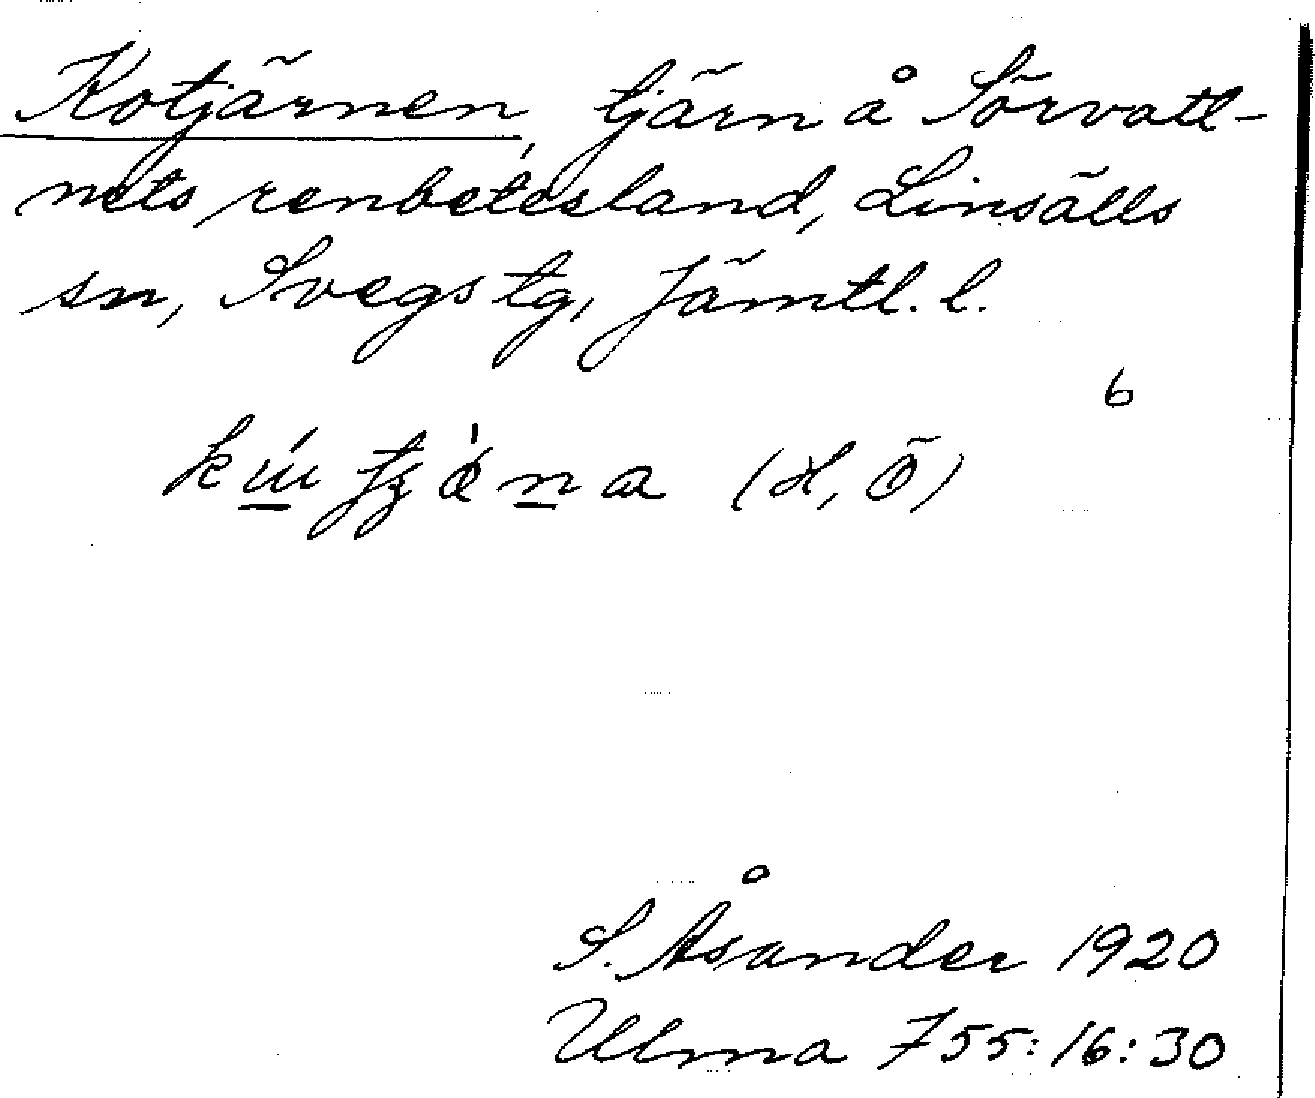 Kotjärnen, tjärn å Sörvatt-
nets renbetesland, Linsälls
sn, Svegs tg, Jämtl. l.
6
S. Åsander 1920
Ulma 755:16:30